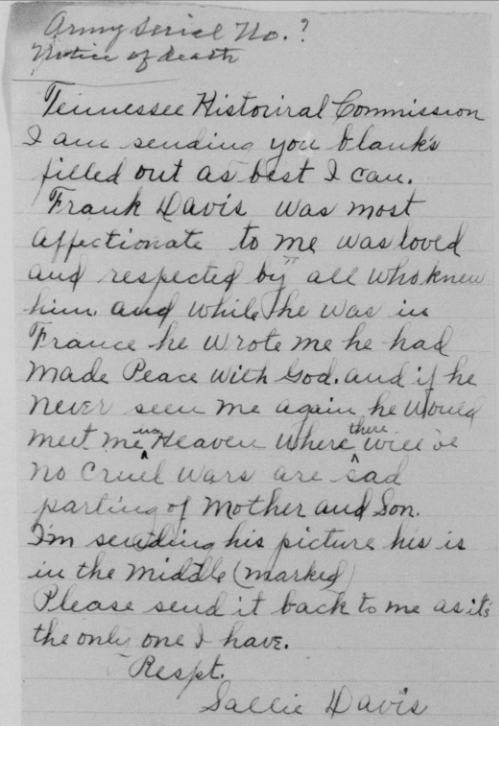 Army Serial No.?
Notice of death
Tennessee Historiral Commission
I am sending you blank's
filled out as best I can.
Frank Davis was most
affectionate to me was loved
and respected by all who knew
him. and while he was in
France he wrote me he had
made Peace with God. and if he
never seen me again he would
meet me in Heaven where there will be
no Cruel wars are sad
parting of Mother and Son.
I'm sending his picture his is
in the middle (marked)
Please send it back to me as its
the only one I have.
Respt.
Sallie Davis